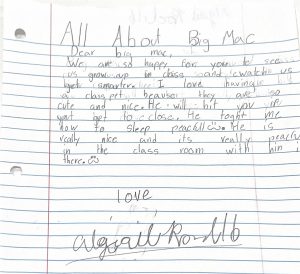 All About Big Mac
Dear big mac,
We are so happy for you to see
us grow up in class and watch us
get smarter. I love having
a class pet because they are so
cute and nice. He will bit you if
you get to close. He taght me
how to sleep peacfully. He is
really nice and its really peacful
in the class room with him in
there.
love